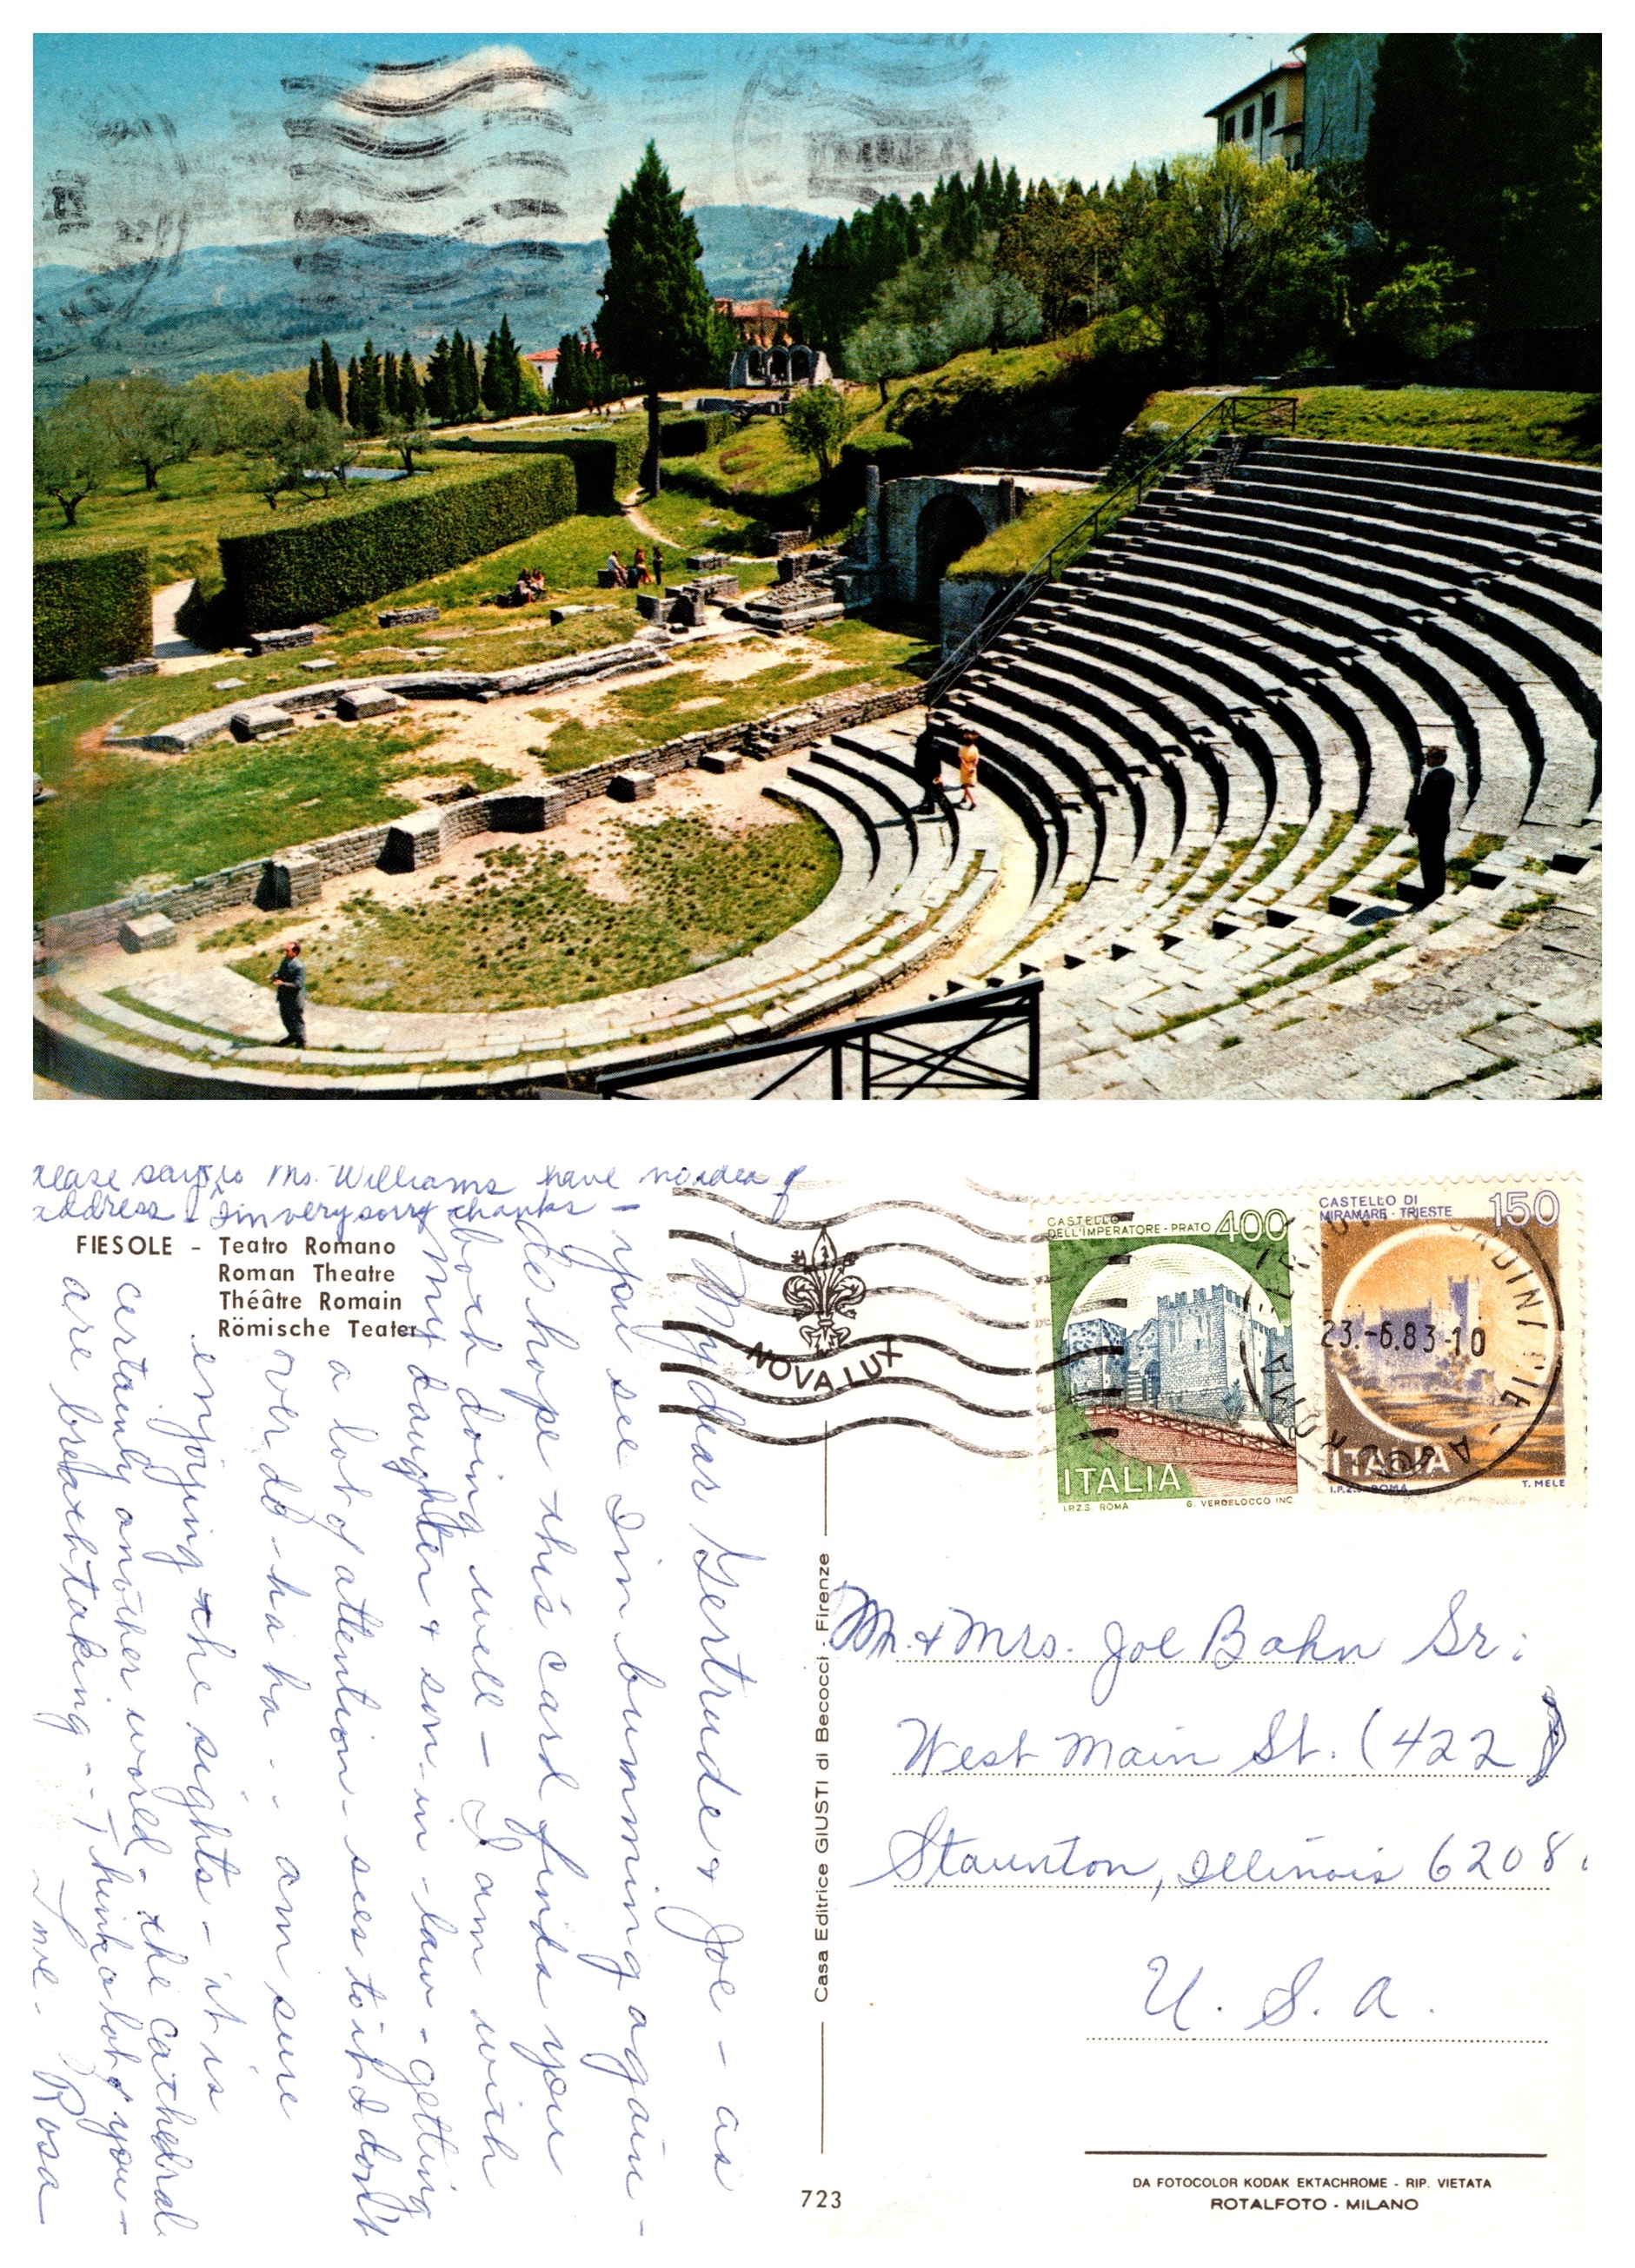 Please say to Ms. Williams have no idea of
address - I'm very sorry thanks -
FIESOLE - Teatro Romano
Roman Theatre
Théâtre Romain
Römische Teater
My dear Gertrude & Joe - as
you see I'm bumming again -
do hope this card finds you
both doing well - I am with
my daughter & son-in-law - getting
a lot of attention - sees to it I don't
over do - ha ha .. am sure
enjoying the sights - it is
certainly another world - the cathedral
are breathtaking .. Think a lot of you -
Love - Rosa
NOVA LUX
CASTELLO
DELL'IMPERATORE - PRATO 400
ITALIA
I.P.Z.S. ROMA G. VERDELOCCO INC
CASTELLO DI
MIRAMARE - TRIESTE 150
ITALIA
I.P.Z.S. ROMA T. MELE
23.-6.83-10
ROMA
Casa Editrice GIUSTI di Becocci - Firenze
Mr. & Mrs. Joe Bahn Sr:
West Main St. (422)
Staunton, Illinois 6208
U. S. A.
723
DA FOTOCOLOR KODAK EKTACHROME - RIP. VIETATA
ROTALFOTO - MILANO